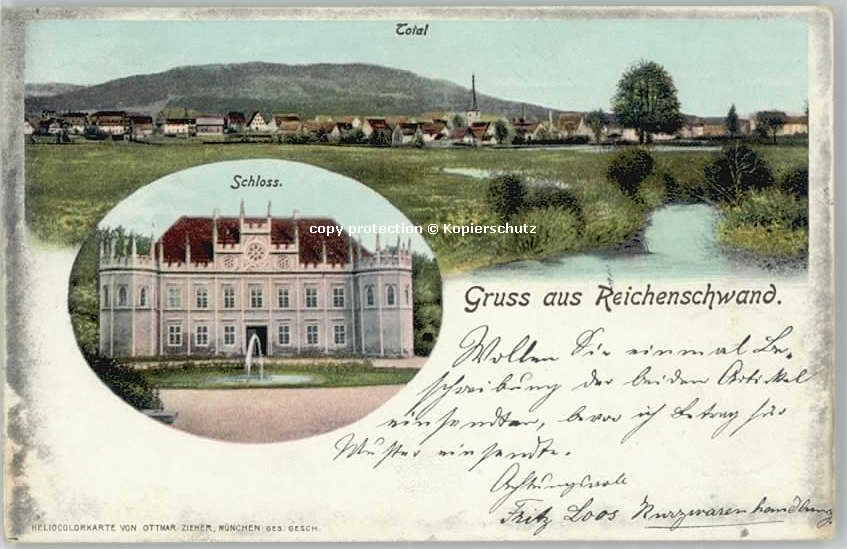 Total
Schloss.
copy protection © Kopierschutz
Gruss aus Reichenschwand.
Wollen Sie einmal Be-
schreibung der beiden Artikel
einsenden, bevor ich Betrag für
Muster einsende.
Achtungsvoll
Fritz Loos Kurzwarenhandlung
HELIOCOLORKARTE VON OTTMAR ZIEHER, MÜNCHEN GES. GESCH.